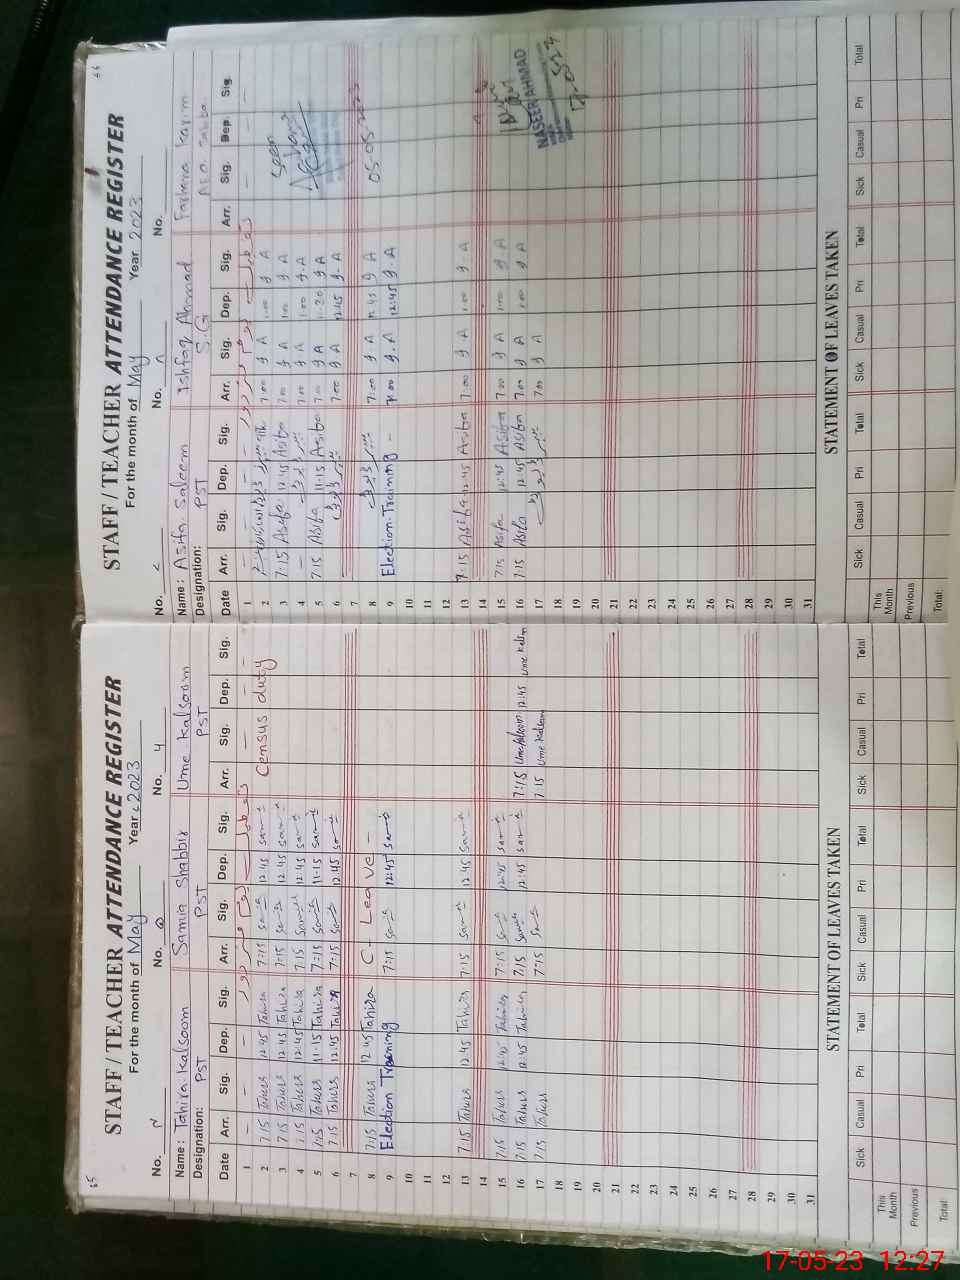 65
STAFF / TEACHER ATTENDANCE REGISTER
For the month of May Year 2023
No. No. No. 4
Name: Tahira Kalsoom Samia Shabbir Ume Kalsoom
Designation: PST PST PST
Date Arr. Sig. Dep. Sig. Arr. Sig. Dep. Sig. Arr. Sig. Dep. Sig.
1 یوم مزدور
2 7:15 Tahira 12:45 Tahira 7:15 Samia 12:45 Samia Census duty
3 7:15 Tahira 12:45 Tahira 7:15 Samia 12:45 Samia
4 7:15 Tahira 12:45 Tahira 7:15 Samia 12:45 Samia
5 7:15 Tahira 11:15 Tahira 7:15 Samia 11:15 Samia
6 7:15 Tahira 12:45 Tahira 7:15 Samia 12:45 Samia
7
8 7:15 Tahira 12:45 Tahira C - Leave -
9 Election Training 7:15 Samia 12:45 Samia
10
11
12
13 7:15 Tahira 12:45 Tahira 7:15 Samia 12:45 Samia
14
15 7:15 Tahira 12:45 Tahira 7:15 Samia 12:45 Samia
16 7:15 Tahira 12:45 Tahira 7:15 Samia 12:45 Samia 7:15 Ume Kalsoom 12:45 Ume Kalsoom
17 7:15 Tahira 7:15 Samia 7:15 Ume Kalsoom
18
19
20
21
22
23
24
25
26
27
28
29
30
31
STATEMENT OF LEAVES TAKEN
Sick Casual Pri Total Sick Casual Pri Total Sick Casual Pri Total
This Month
Previous
Total:
66
STAFF / TEACHER ATTENDANCE REGISTER
For the month of May Year 2023
No. No. No.
Name: Asifa Saleem Ishfaq Ahmad Farhana Karim
Designation: PST S.G
Date Arr. Sig. Dep. Sig. Arr. Sig. Dep. Sig. Arr. Sig. Dep. Sig.
1 یوم مزدور
2 7:00 I A 1:00 I A
3 7:15 Asifa 12:45 Asifa 7:00 I A 1:00 I A Seen
4 7:00 I A 1:00 I A
5 7:15 Asifa 11:15 Asifa 7:00 I A 11:30 I A
6 7:00 I A 12:45 I A
7
8 7:00 I A 12:45 I A 05-05-2023
9 Election Training - 7:00 I A 12:45 I A
10
11
12
13 7:15 Asifa 12:45 Asifa 7:00 I A 1:00 I A
14
15 7:15 Asifa 12:45 Asifa 7:00 I A 1:00 I A
16 7:15 Asifa 12:45 Asifa 7:00 I A 1:00 I A
17 7:00 I A
NASEER AHMAD
18
19
20
21
22
23
24
25
26
27
28
29
30
31
STATEMENT OF LEAVES TAKEN
Sick Casual Pri Total Sick Casual Pri Total Sick Casual Pri Total
This Month
Previous
Total:
17-05-23 12:27